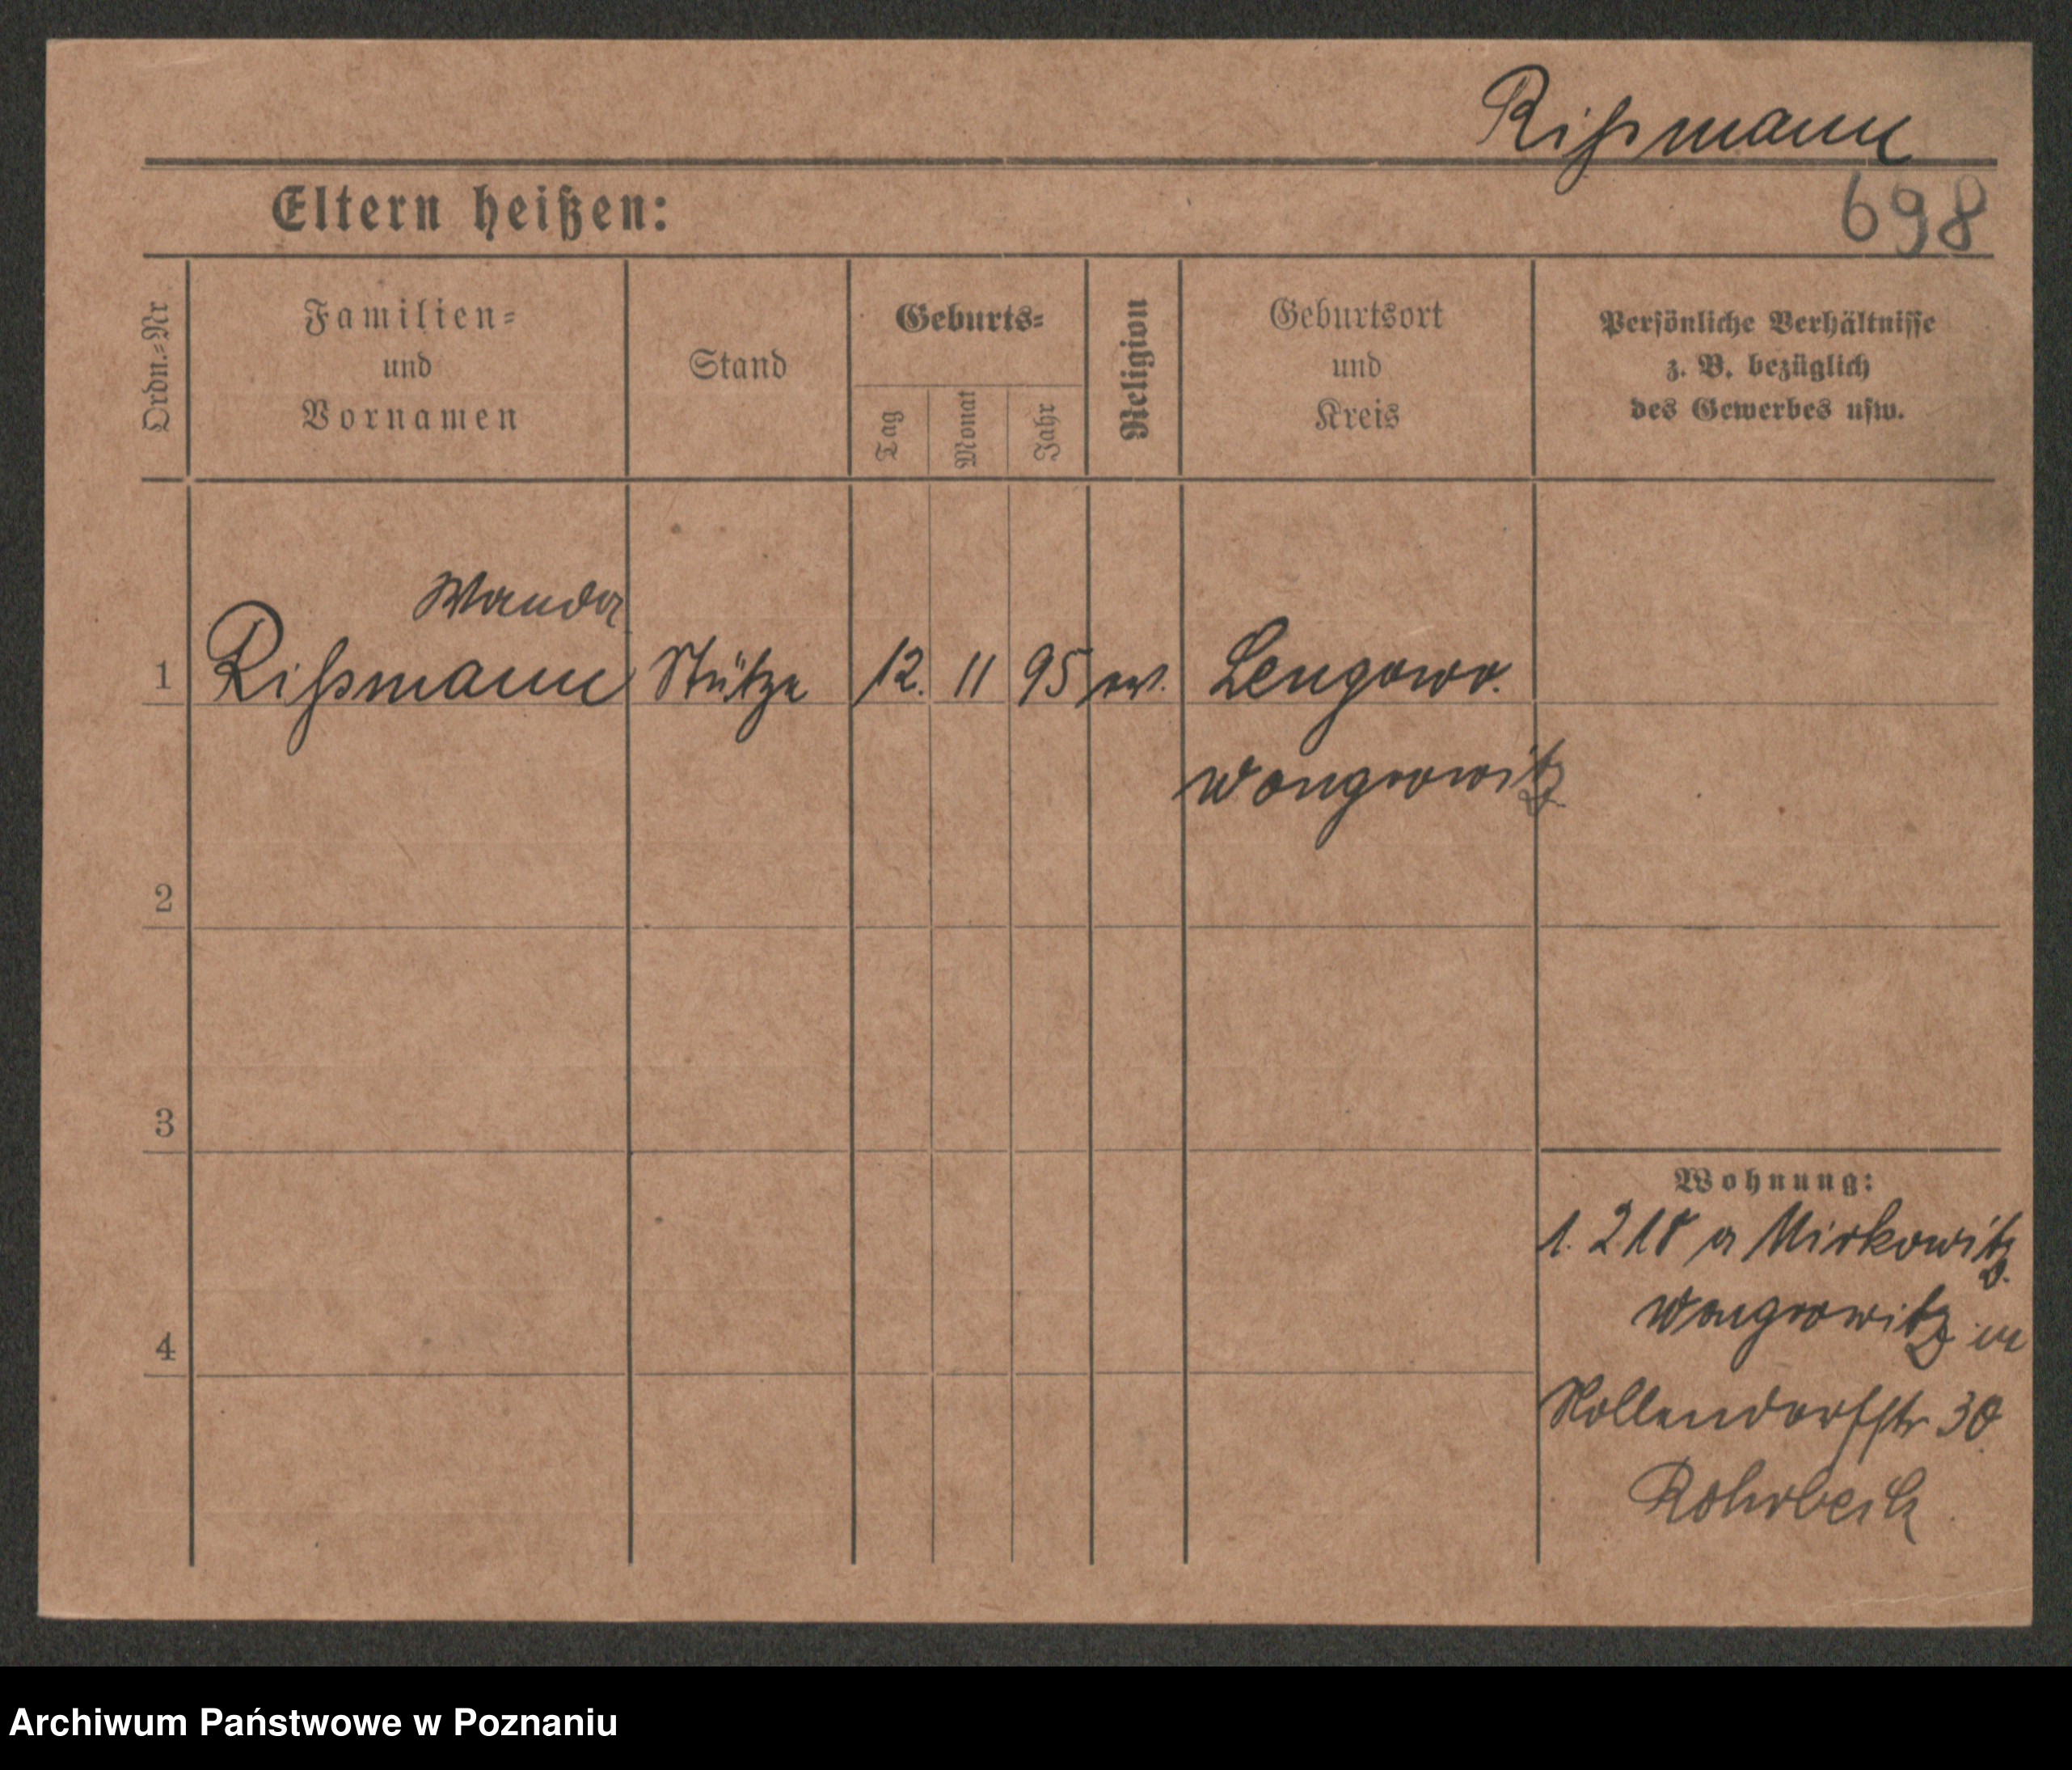 Rißmann
698
Eltern heißen:
Ordn.=Nr.
Familien=
und
Vornamen
Stand
Geburts=
Tag
Monat
Jahr
Religion
Geburtsort
und
Kreis
Persönliche Verhältnisse
z. B. bezüglich
des Gewerbes usw.
Wanda
1 Rißmann Stütze 12. 11 95 ev. Lengowo.
Wongrowitz
2
3
4
Wohnung:
1. 2 18 a Mirkowitz
Wongrowitz in
Nollendorfstr 30.
Rohrbeck
Archiwum Państwowe w Poznaniu